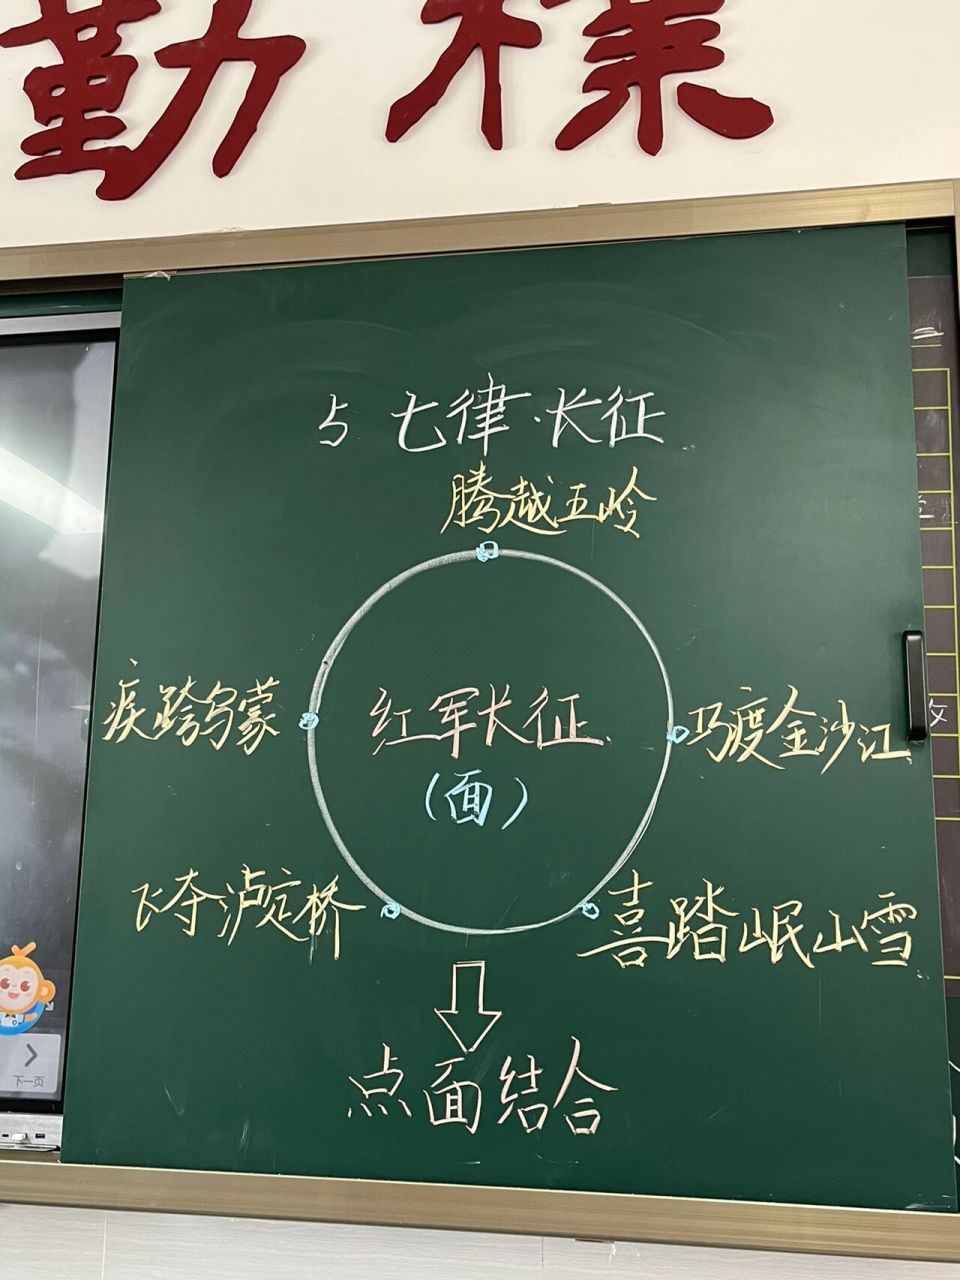 勤朴
5 七律·长征
腾越五岭
疾跨乌蒙
红军长征
(面)
巧渡金沙江
飞夺泸定桥
喜踏岷山雪
点面结合
下一页